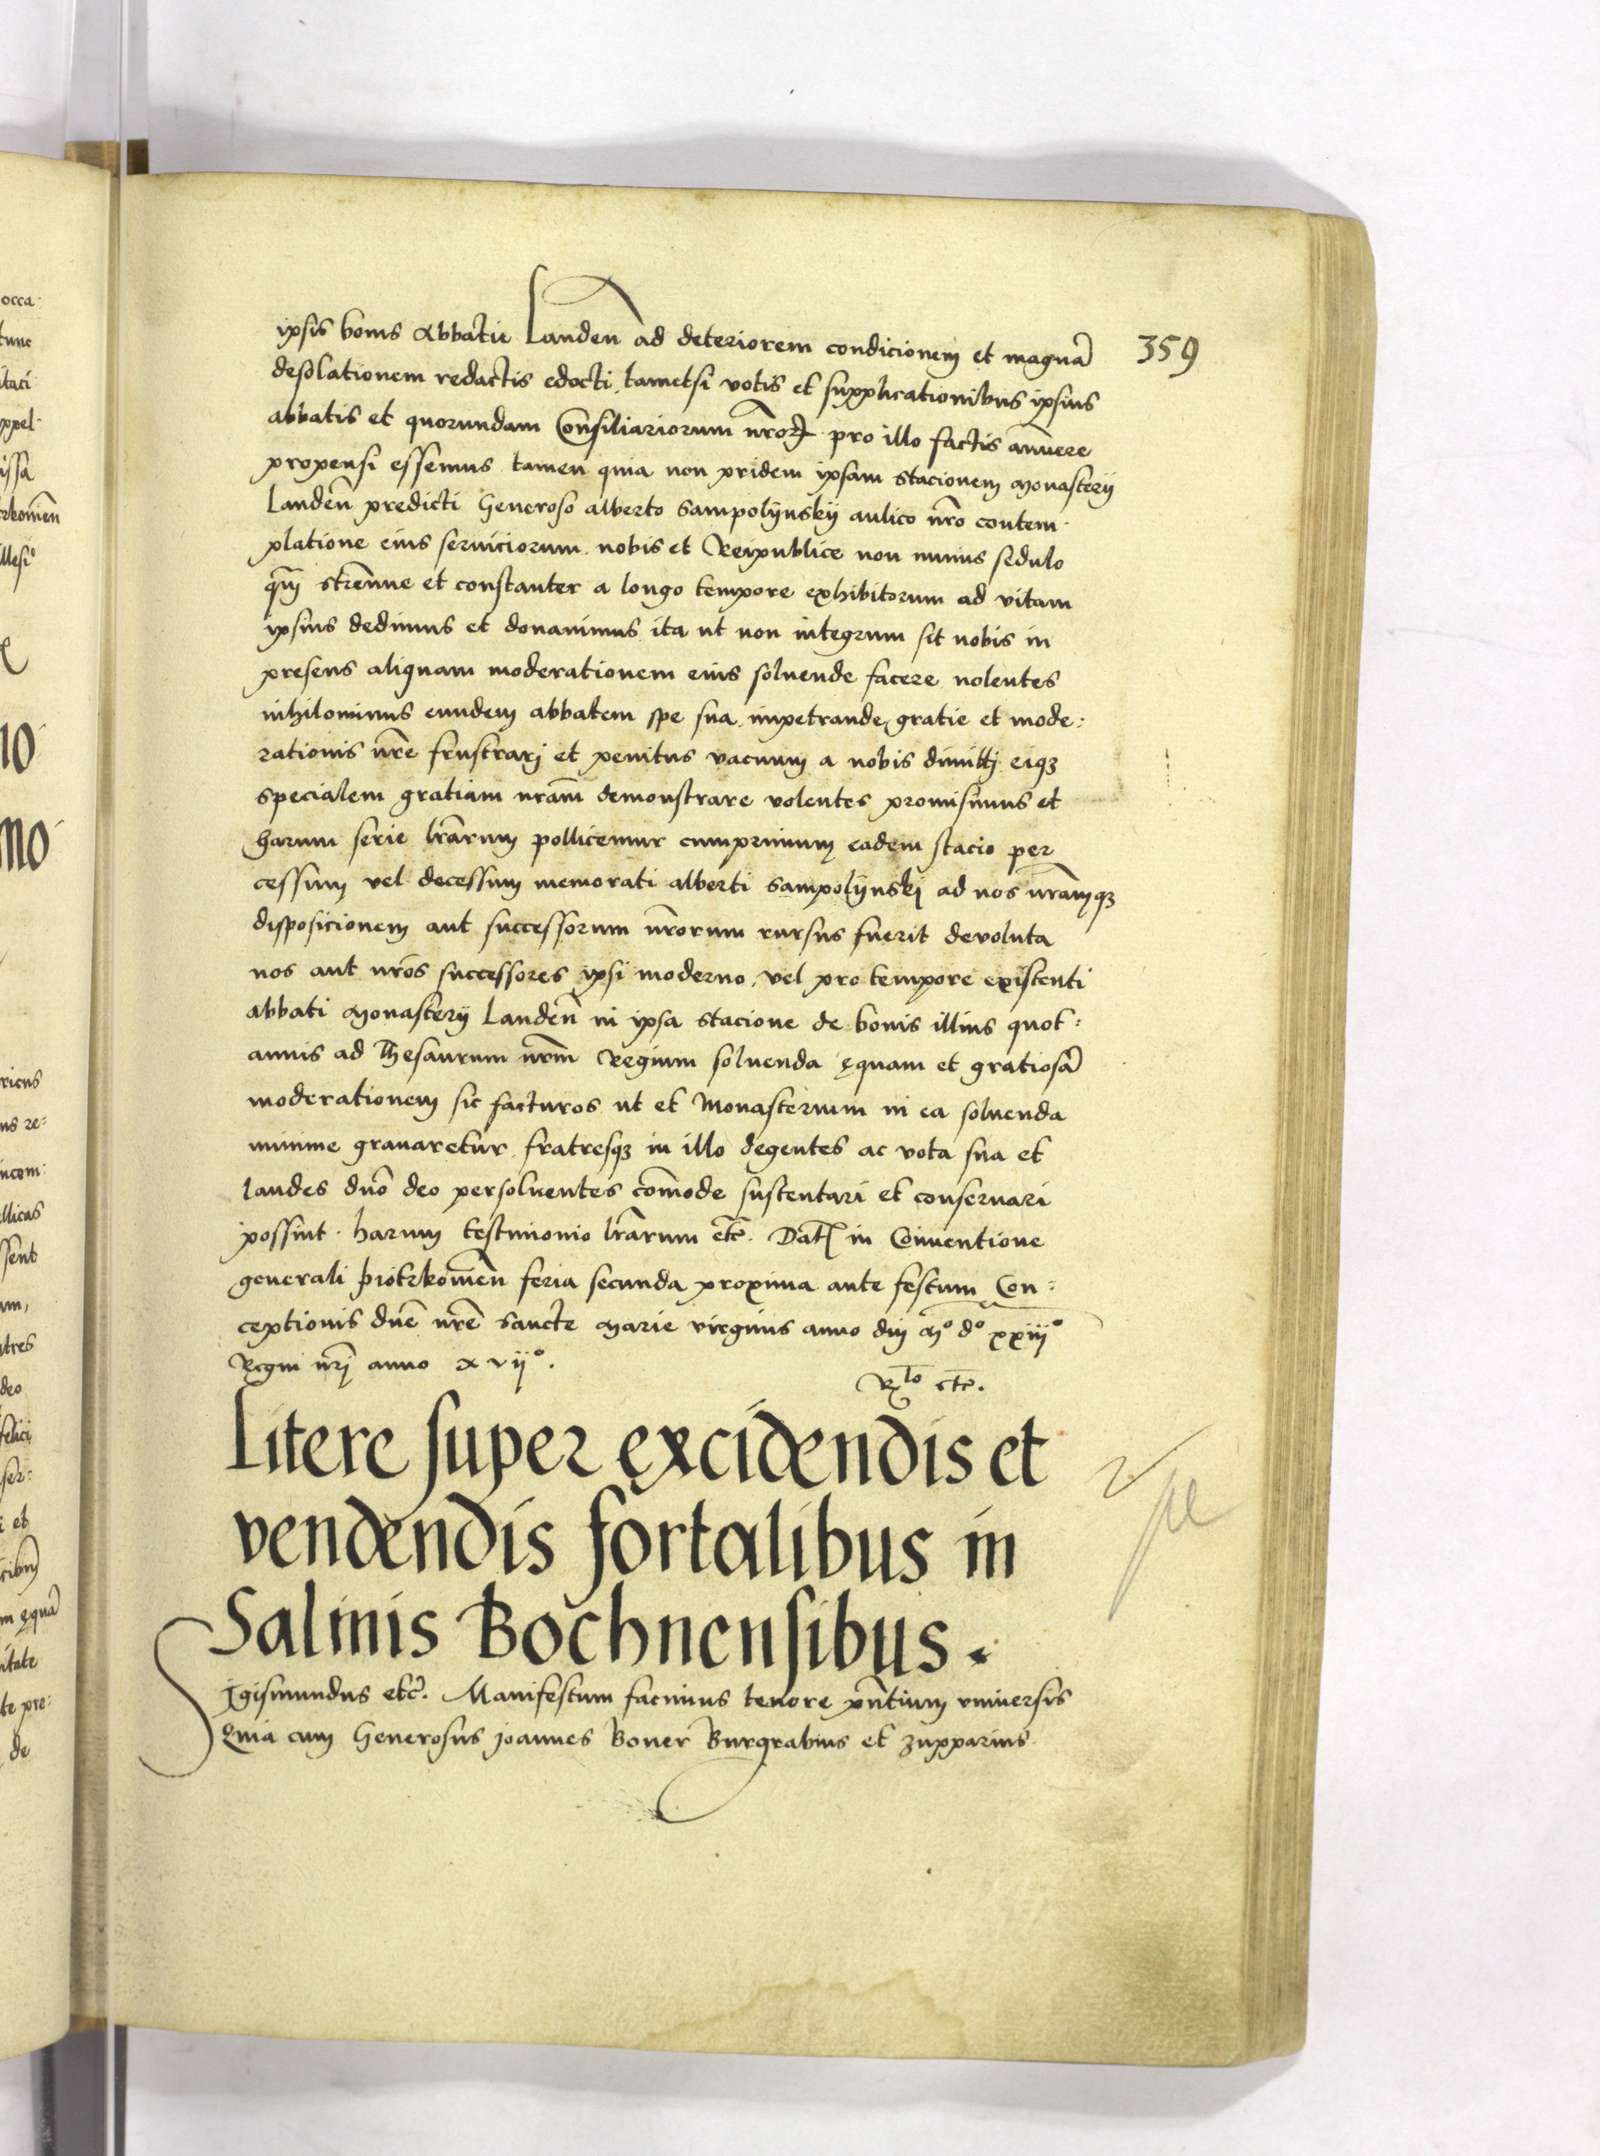 359
ipsis bonis Abbatie Landen̄ ad deteriorem condicionem et magnā
desolationem redactis edocti, tametsi votis et supplicationibus ipsius
abbatis et quorundam Consiliariorum nr̄oꝝ pro illo factis annuere
propensi essemus tamen quia non pridem ipsam stacionem Monasterij
Landen̄ predicti Generoso alberto Sampolijnskij aulico nr̄o contem-
platione eius seruiciorum nobis et Reipublice non minus sedulo
qm̄ strenue et constanter a longo tempore exhibitorum ad vitam
ipsius dedimus et donauimus ita ut non integrum sit nobis in
presens aliquam moderationem eius soluende facere nolentes
nihilominus eundem abbatem spe sua impetrande gratie et mode:
rationis nr̄e frustrarj et penitus vacuum a nobis dimittj eiqꝫ
specialem gratiam nram̄ demonstrare volentes promisimus et
harum serie lr̄arum pollicemur cumprimum eadem stacio per
cessum vel decessum memorati alberti Sampolijnskj ad nos nram̄qꝫ
disposicionem aut successorum nr̄orum rursus fuerit devoluta
nos aut nr̄os successores ipsi moderno vel pro tempore existenti
abbati Monasterij Landen̄ in ipsa stacione de bonis illius quot:
annis ad Thesaurum nrm̄ Regium soluenda ęquam et gratiosā
moderationem sic facturos ut et Monasterium in ea soluenda
minime grauaretur fratresqꝫ in illo degentes ac vota sua et
laudes dn̄o deo persoluentes com̄ode sustentari et conseruari
possint. harum testimonio lr̄arum etc̄. Datꝭ in Conuentione
generali piotrkomien̄ feria secunda proxima ante festum Con:
ceptionis dn̄e nr̄e sancte Marie virginis anno dnj Mº dº xxiijº
Regni nr̄j anno xvijº.
Rlo etc̄.
Litere super excidendis et
vendendis fortalibus in
Salinis Bochnensibus.
Sigismundus etc̄. Manifestum facimus tenore pn̄tium vniuersis
Quia cum Generosus joannes Boner Burgrabius et zupparius